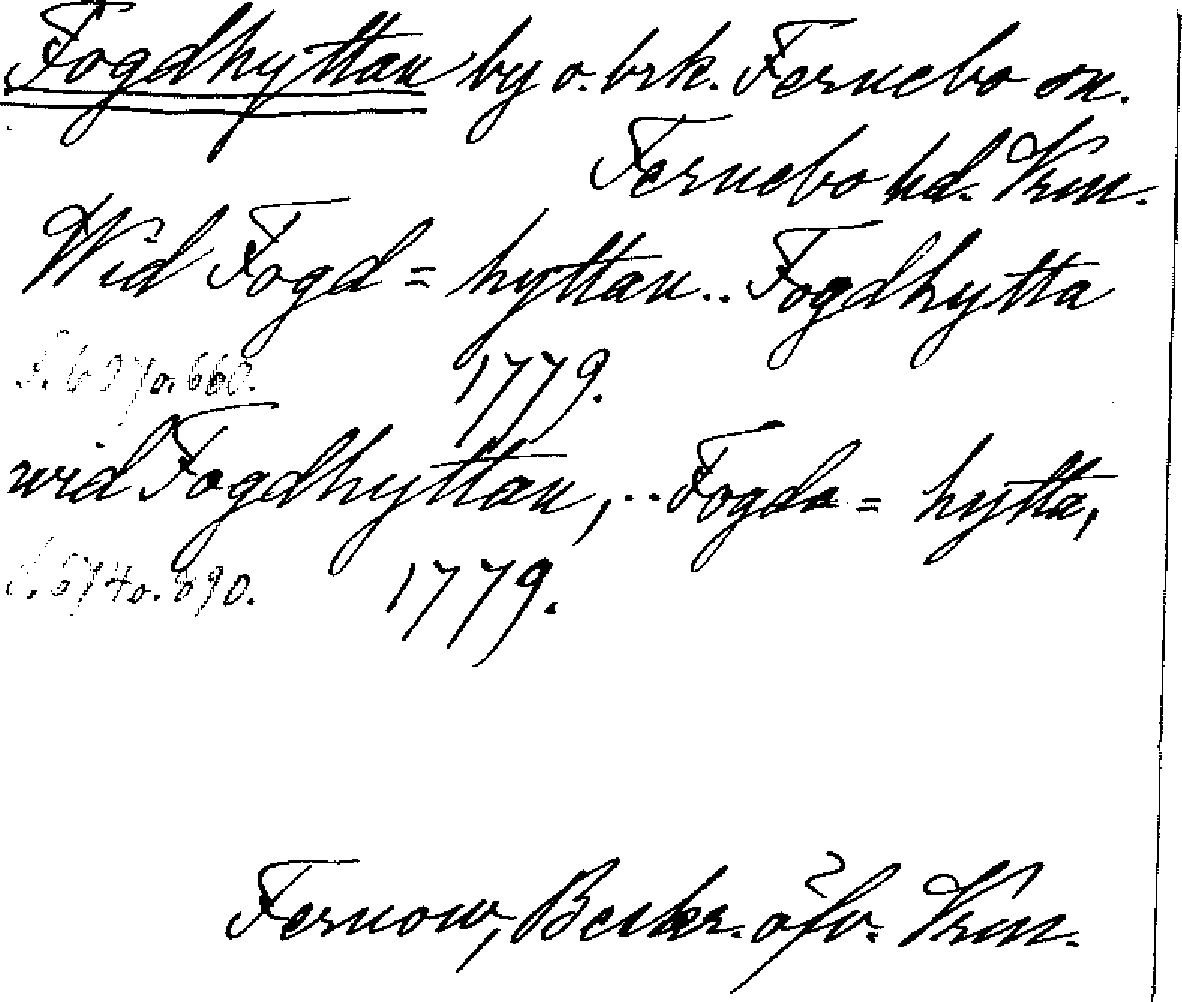 Fogdhyttan by o. brk. Fernebo sn.
Fernebo hd. Vrm.
Wid Fogd= hyttan.. Fogdhytta
1779.
wid Fogdhyttan, .. Fogde= hytta,
1779.
Fernow, Beskr. öfv. Vrm.